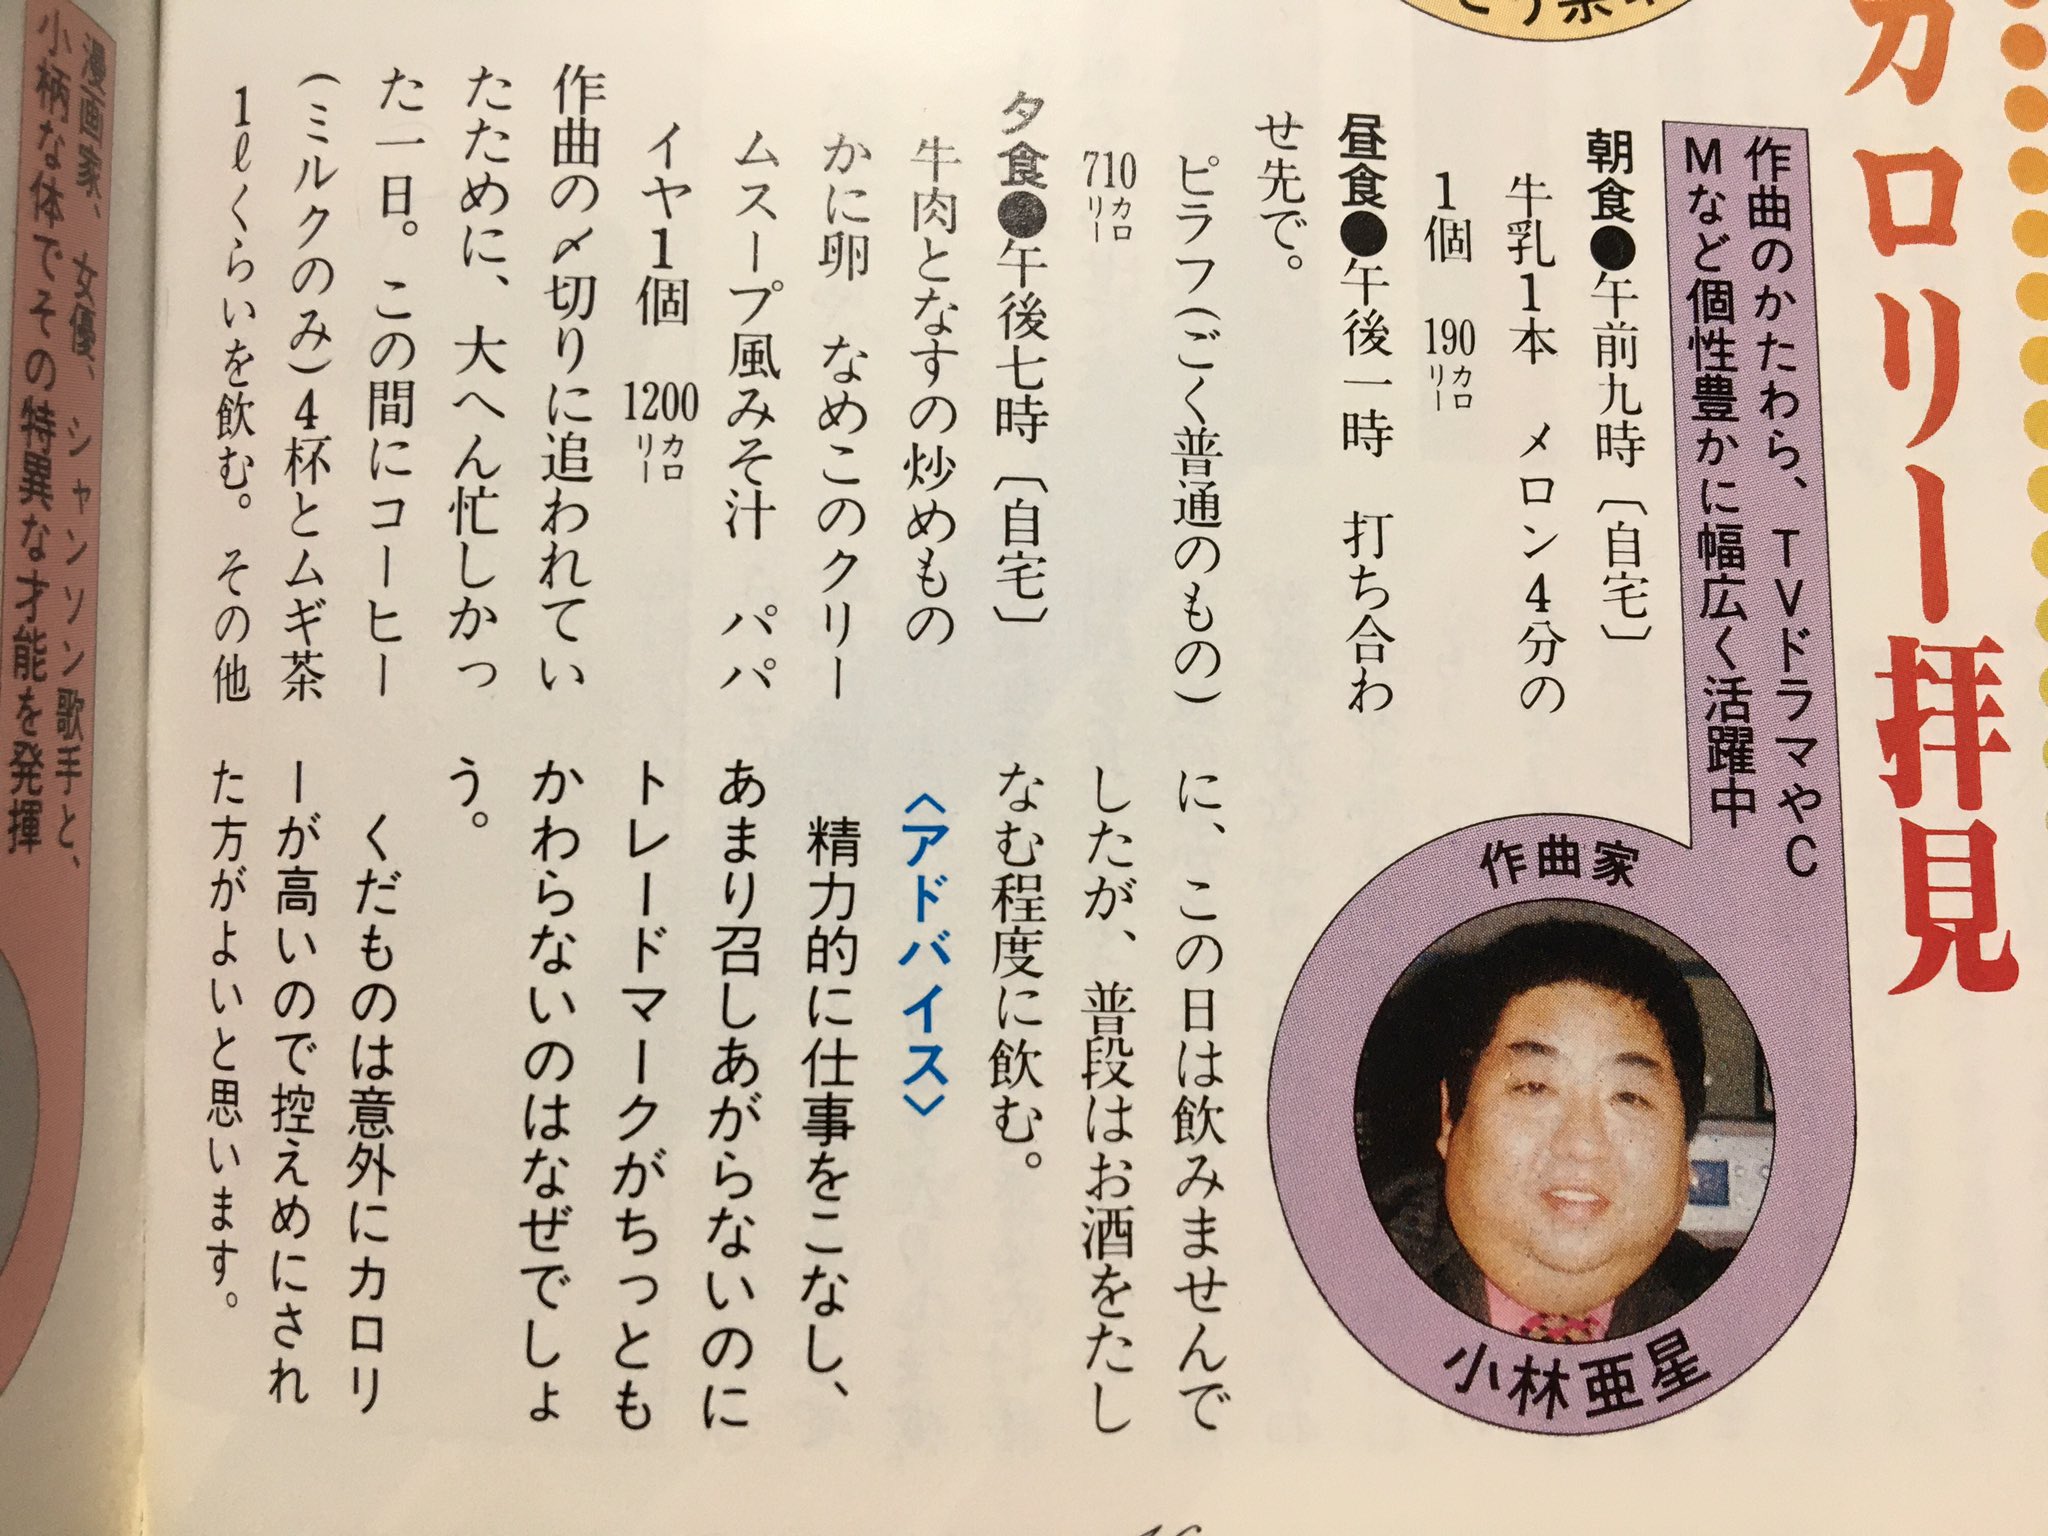 カロリー拝見
作曲のかたわら、TVドラマやC
Mなど個性豊かに幅広く活躍中
作曲家
小林亜星
朝食●午前九時〔自宅〕
牛乳1本　メロン4分の
1個　190カロリー
昼食●午後一時　打ち合わ
せ先で。
ピラフ(ごく普通のもの)
710カロリー
夕食●午後七時〔自宅〕
牛肉となすの炒めもの
かに卵　なめこのクリー
ムスープ風みそ汁　パパ
イヤ1個　1200カロリー
作曲の〆切りに追われてい
たために、大へん忙しかっ
た一日。この間にコーヒー
(ミルクのみ)4杯とムギ茶
1ℓくらいを飲む。その他
に、この日は飲みませんで
したが、普段はお酒をたし
なむ程度に飲む。
〈アドバイス〉
精力的に仕事をこなし、
あまり召しあがらないのに
トレードマークがちっとも
かわらないのはなぜでしょ
う。
くだものは意外にカロリ
ーが高いので控えめにされ
た方がよいと思います。
漫画家、女優、シャンソン歌手と、
小柄な体でその特異な才能を発揮